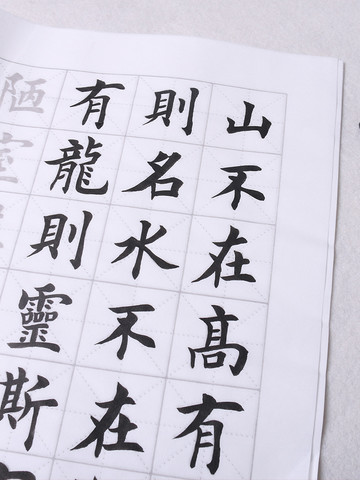 山不在高有
則名水不在
有龍則靈斯
陋室